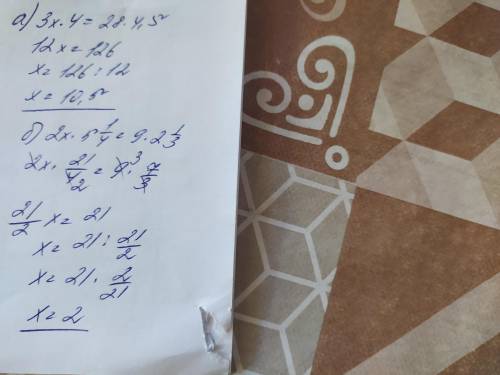 а) 3x·4=28·4,5
12x=126
x=126:12
x=10,5
б) 2x·5 1/4=9·2 1/3
2x·21/4 2=9·3 7/3
21/2 x=21
x=21:21/2
x=21·2/21
x=2